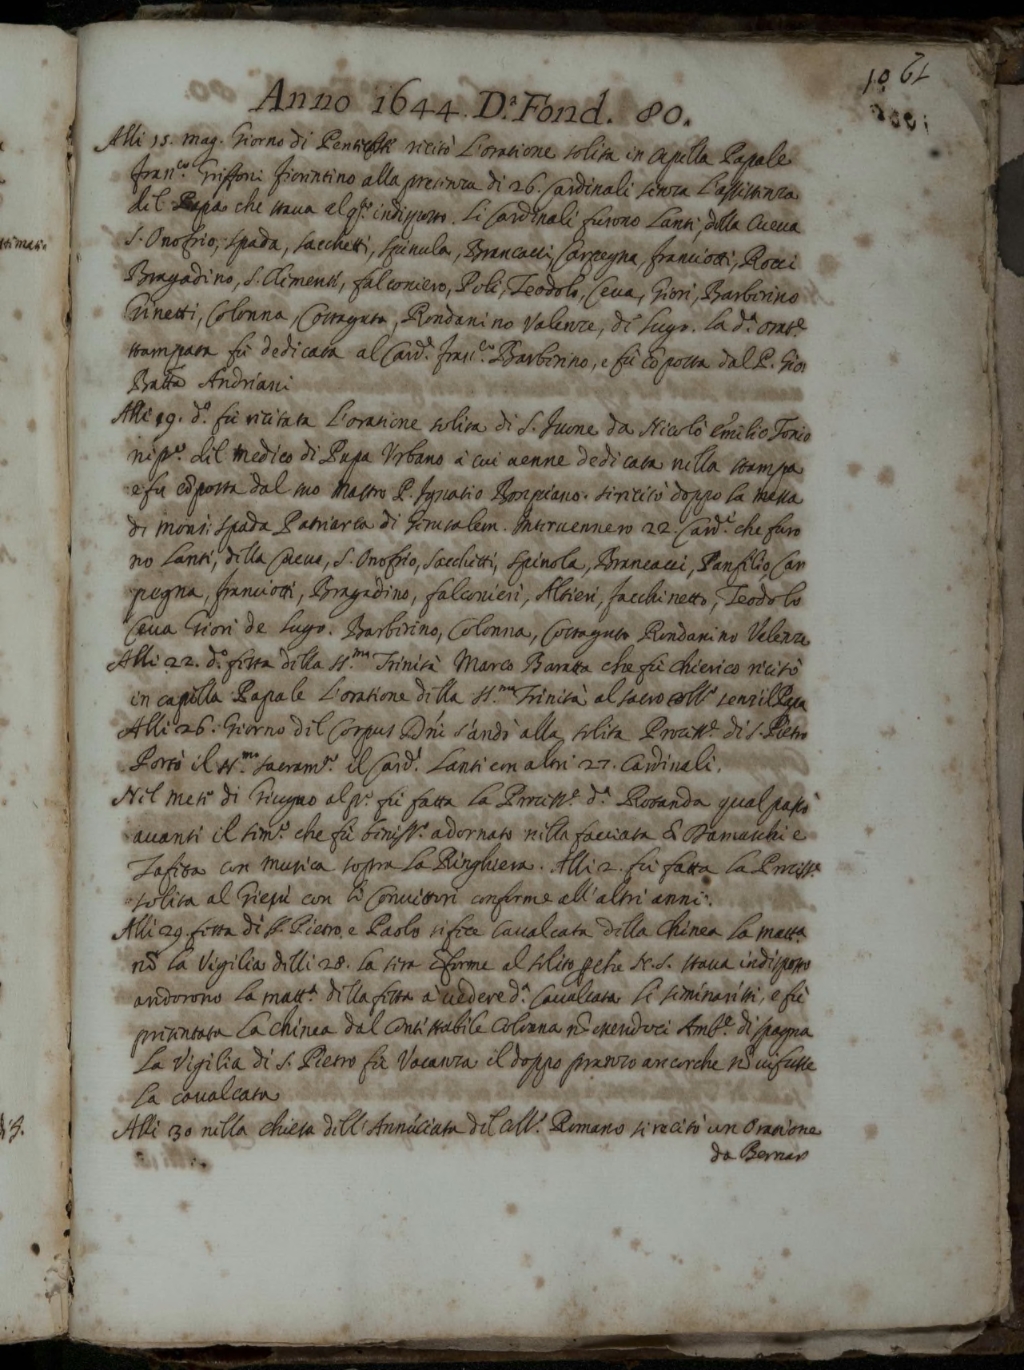 Anno 1644. D.ª Fond. 80.
Alli 15. mag. Giorno di Pentecoste recitò l'oratione solita in Capella Papale
Fran.co Griffoni fiorentino alla presenza di 26. Cardinali senza l'assistenza
del Papa che staua alq.to indisposto. Li Cardinali furono Lanti, della Cueua
S. Onofrio, Spada, Sacchetti, Spinula, Brancacci, Carpegna, franciotti, Rocci
Bragadino, S. Clemente, falconiero, Poli, Teodolo, Ceua, Giori, Barberino
Ginetti, Colonna, Costaguta, Rondanino Valenze, di Lugo. La d.ª orat.e
stampata fù dedicata al Card. fran.co Barberino, e fù cõposta dal P. Gio:
Batta Andriani
Alli 19. d.º fù recitata l'oratione solita di S. Iuone da Nicolò emilio
nip.e del medico di Papa Vrbano à cui uenne dedicata nella stampa
e fu cõposta dal suo mastro P. Ignatio Bompiano. si recitò doppo la messa
di Mons. Spada Patriarca di Gerusalem. Interuennero 22 Card. che furo
no Lanti, della Cueua, S. Onofrio, Sacchetti, Spinola, Brancacci, Panfilio, Car
pegna, franciotti, Bragadino, falconieri, Altieri, facchinetto, Teodolo
Ceua Giori de Lugo. Barberino, Colonna, Costaguta Rondanino Valenze
Alli 22. d.º festa della SS.ma Trinità Marco Baratta che fù chierico recitò
in capella Papale l'oratione della SS.ma Trinità al sacro coll.º senz il Papa
Alli 26. Giorno del Corpus Dñi s'andò alla solita Process.e di S. Pietro
Portò il SS.mo Sacram.to il Card. Lanti con altri 27. Cardinali.
Nel mese di Giugno al p.º fù fatta la Process.e d.ª Rotonda qual passò
auanti il sem.º che fù beniss.º adornato nella facciata di Damaschi e
Taffettà con musica sopra la Ringhiera. Alli 2. fù fatta la Process.e
solita al Giesù con li Conuittori conforme all'altri anni.
Alli 29. festa di S. Pietro, e Paolo si fece Caualcata della Chinea la matt.ª
nõ la Vigilia delli 28. la sera cõforme al solito pche N.S. staua indisposto
andorono la matt.ª della festa à uedere d.ª Caualcata li seminaristi, e fù
presentata la chinea dal Contestabile Colonna nõ essendoci Amb.e di Spagna
La Vigilia di S. Pietro fù Vacanza il doppo pranzo ancorche nõ ui fusse
la caualcata
Alli 30 nella chiesa dell'Annũciata del Coll.º Romano si recitò un Oratione
da Bernar